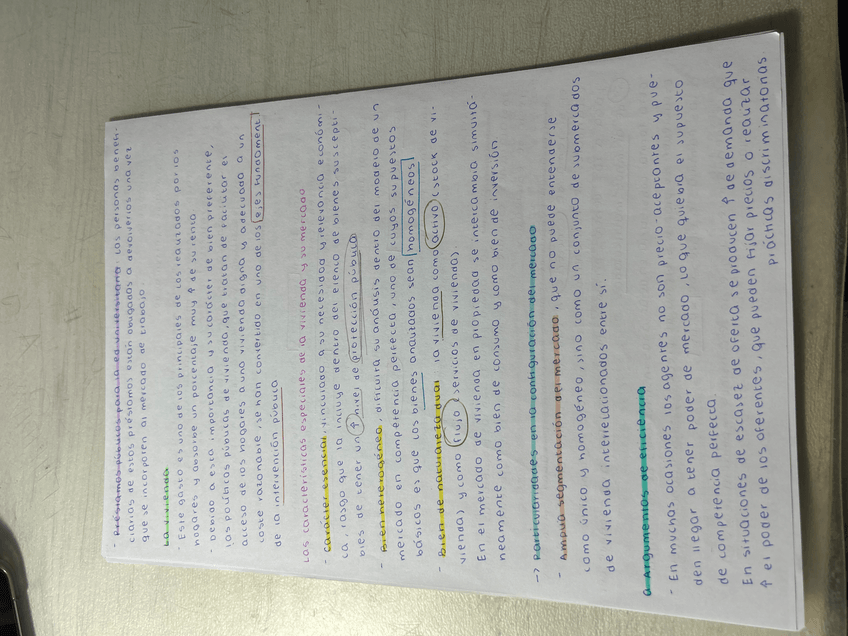 - Préstamos públicos para la ed universitaria Las personas benefi-
ciarias de estos préstamos están obligadas a devolverlos una vez
que se incorporen al mercado de trabajo
La vivienda
- Este gasto es uno de los principales de los realizados por los
hogares y absorbe un porcentaje muy ↑ de su renta.
- Debido a esta importancia y su carácter de bien preferente,
las políticas públicas de vivienda, que tratan de facilitar el
acceso de los hogares a una vivienda digna y adecuada a un
coste razonable, se han convertido en uno de los ejes fundament
de la intervención pública
Las características especiales de la vivienda y su mercado
- Carácter esencial, vinculado a su necesidad y relevancia económi-
ca, rasgo que la incluye dentro del elenco de bienes suscepti-
bles de tener un ↑ nivel de protección pública
- Bien heterogéneo, dificulta su análisis dentro del modelo de un
mercado en competencia perfecta, uno de cuyos supuestos
básicos es que los bienes analizados sean homogéneos
- Bien de naturaleza dual la vivienda como activo (stock de vi-
vienda) y como flujo (servicios de vivienda)
En el mercado de vivienda en propiedad se intercambia simultá-
neamente como bien de consumo y como bien de inversión
-> Particularidades en la configuración del mercado
- Amplia segmentación del mercado, que no puede entenderse
como único y homogéneo, sino como un conjunto de submercados
de vivienda interrelacionados entre sí.
a Argumentos de eficiencia
- En muchas ocasiones los agentes no son precio-aceptantes y pue-
den llegar a tener poder de mercado, lo que quiebra el supuesto
de competencia perfecta.
En situaciones de escasez de oferta se producen ↑ de demanda que
↑ el poder de los oferentes, que pueden fijar precios o realizar
prácticas discriminatorias